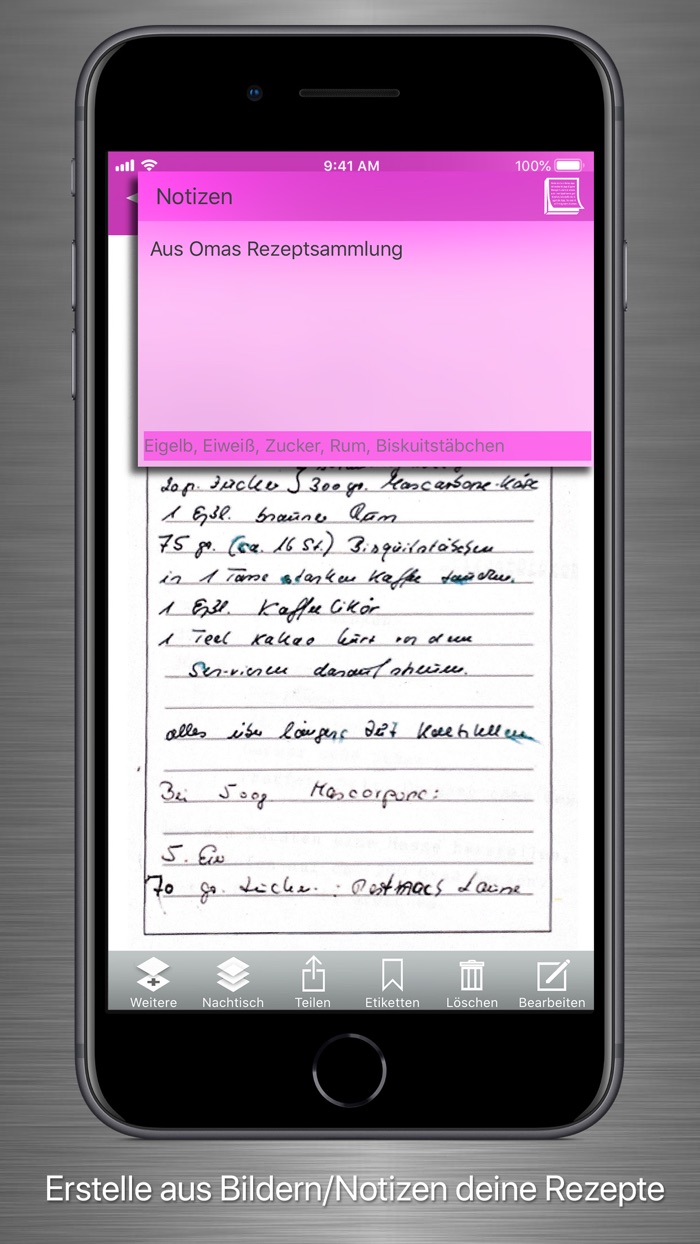 9:41 AM 100%
Notizen
Aus Omas Rezeptsammlung
Eigelb, Eiweiß, Zucker, Rum, Biskuitstäbchen
20 gr. Zucker 300 gr. Mascarbone-Käse
1 Eßl. brauner Rum
75 gr. (ca. 16 St.) Bisquitstäbchen
in 1 Tasse starken Kaffee
1 Eßl. Kaffeelikör
1 Teel Kakao kurz vor dem
Servieren darauf streuen.
alles über längere Zeit kaltstellen
Bei 500g Mascarpone:
5. Eier
70 gr. Zucker. : Rest nach Laune
Weitere Nachtisch Teilen Etiketten Löschen Bearbeiten
Erstelle aus Bildern/Notizen deine Rezepte